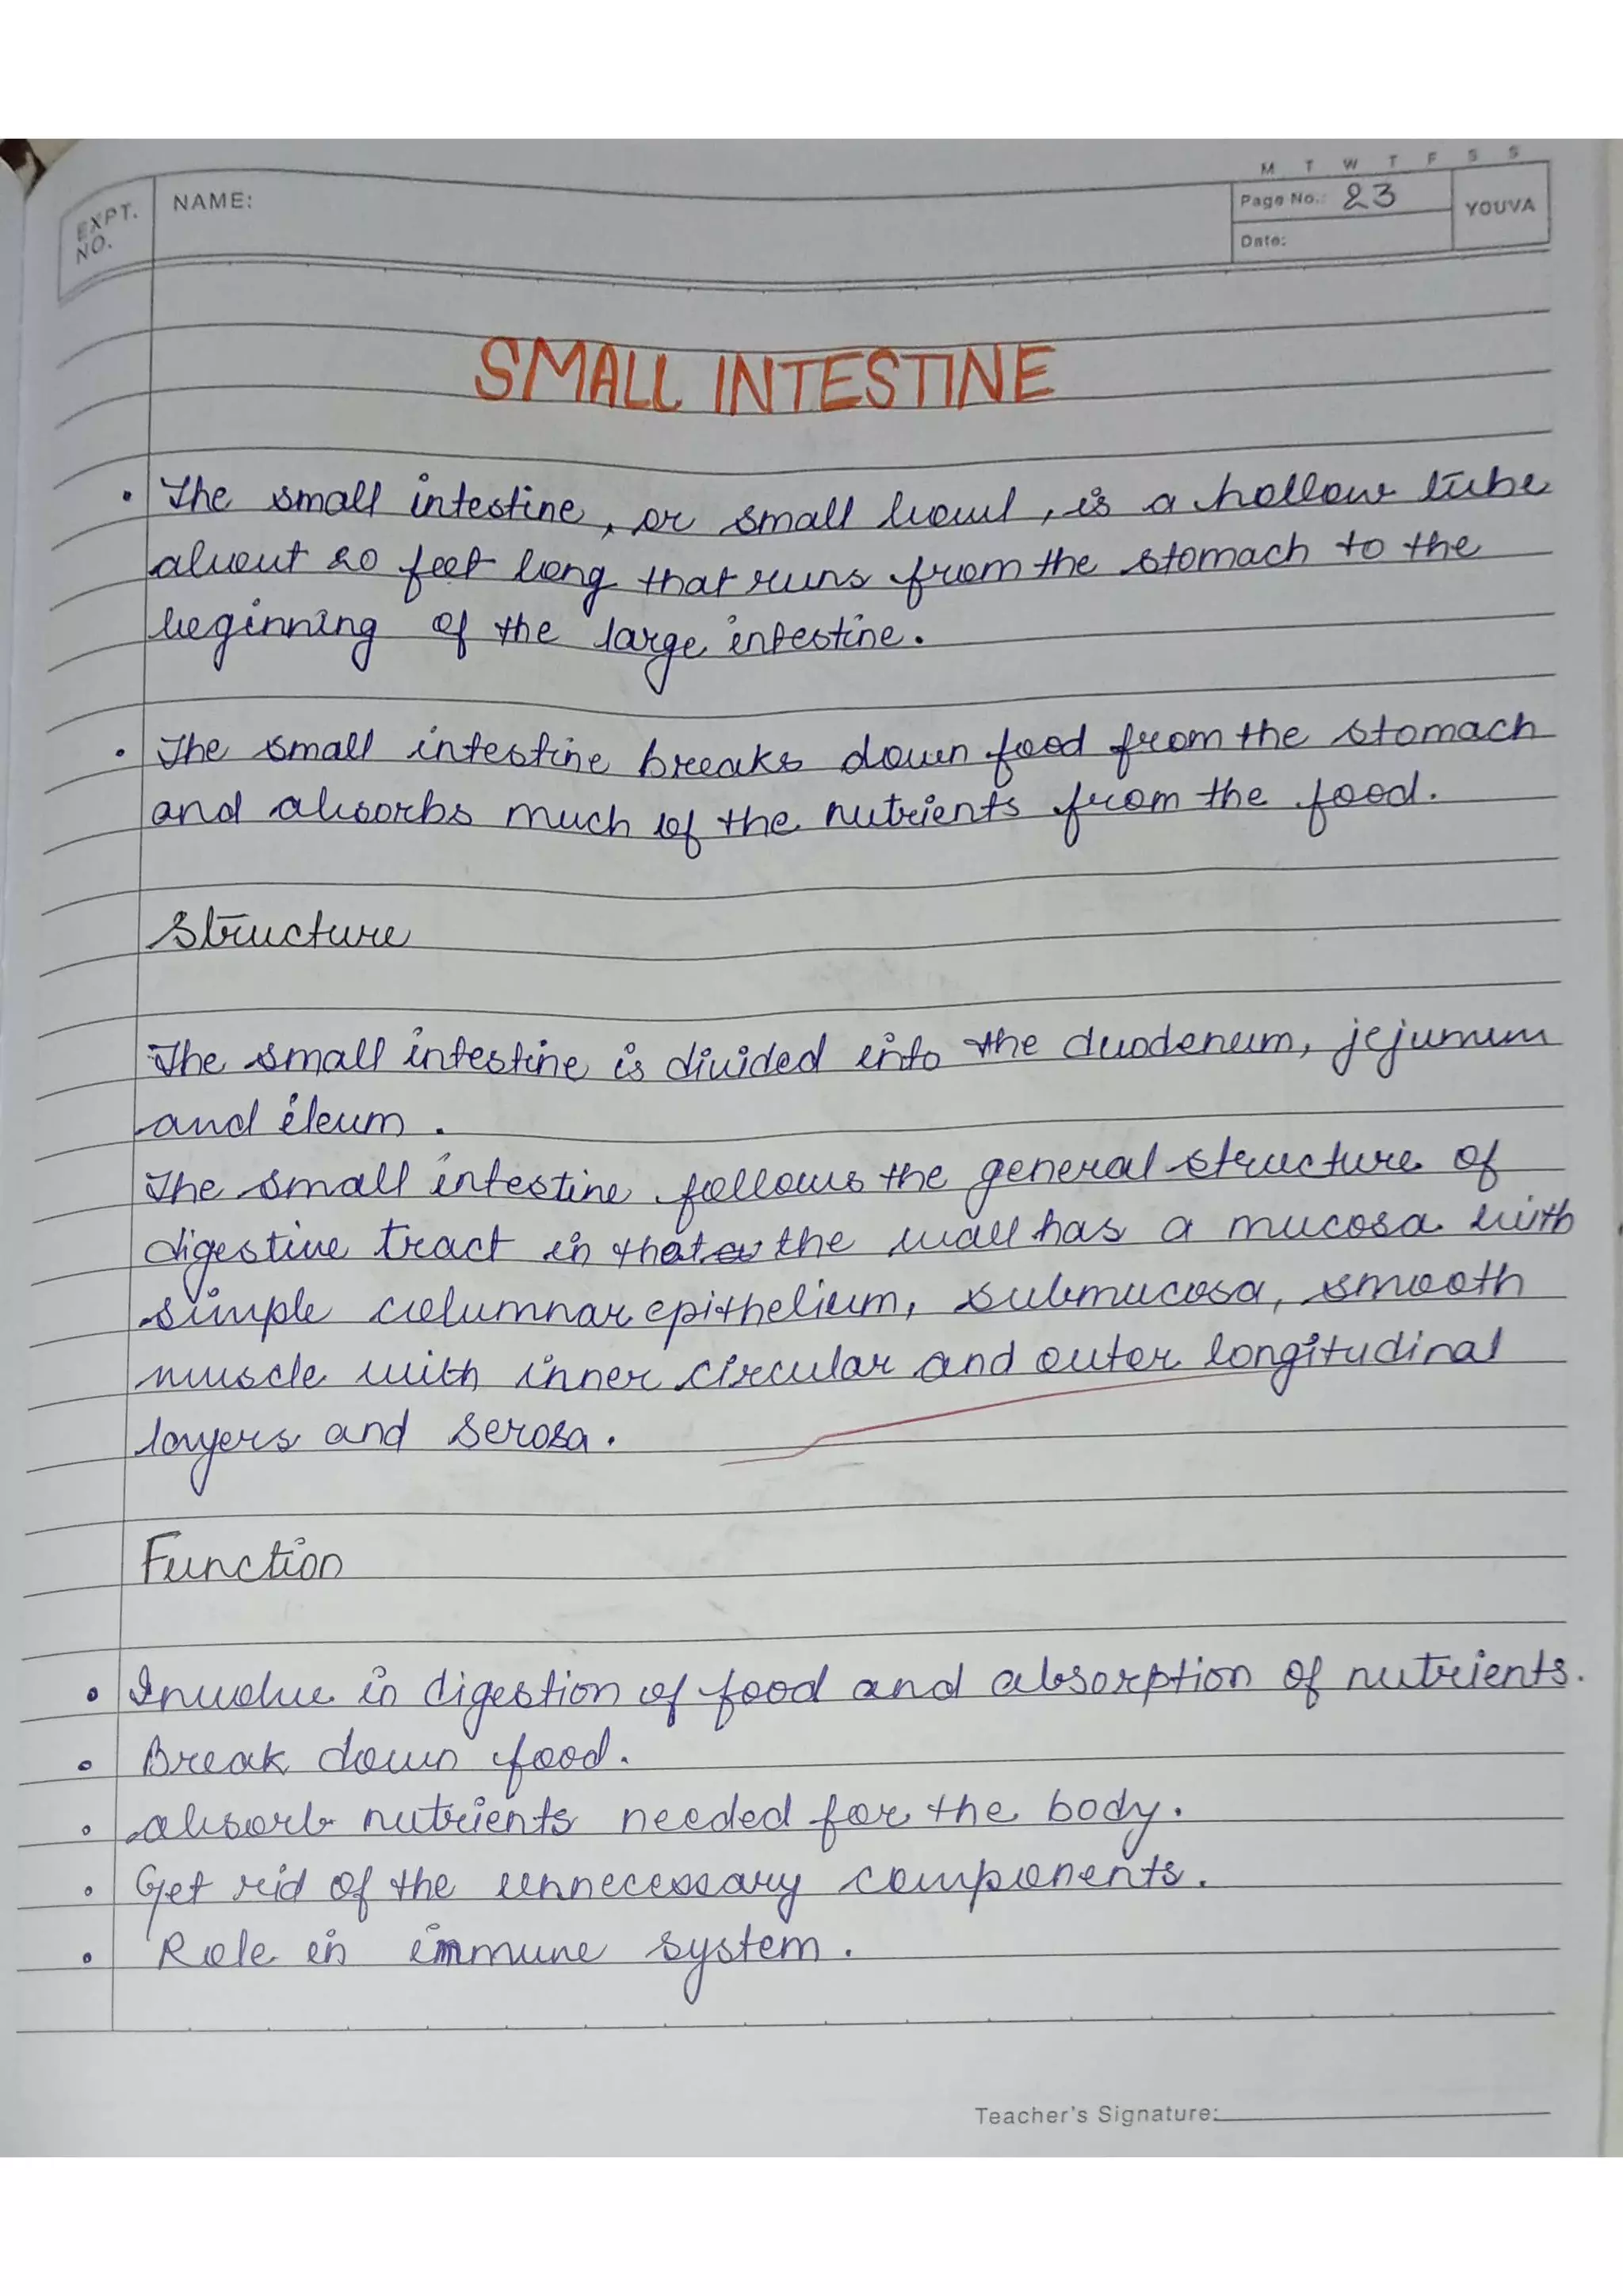 M T W T F S S
EXPT. NO.
NAME:
Page No.: 23
YOUVA
Date:
SMALL INTESTINE
• The small intestine, or small bowl, is a hollow tube
about 20 feet long that runs from the stomach to the
beginning of the large intestine.
• The small intestine breaks down food from the stomach
and absorbs much of the nutrients from the food.
Structure
The small intestine is divided into the duodenum, jejunum
and ileum.
The small intestine follows the general structure of
digestive tract in that the wall has a mucosa with
simple columnar epithelium, submucosa, smooth
muscle with inner circular and outer longitudinal
layers and serosa.
Function
• Involve in digestion of food and absorption of nutrients.
• Break down food.
• absorb nutrients needed for the body.
• Get rid of the unnecessary components.
• Role in immune system.
Teacher's Signature: